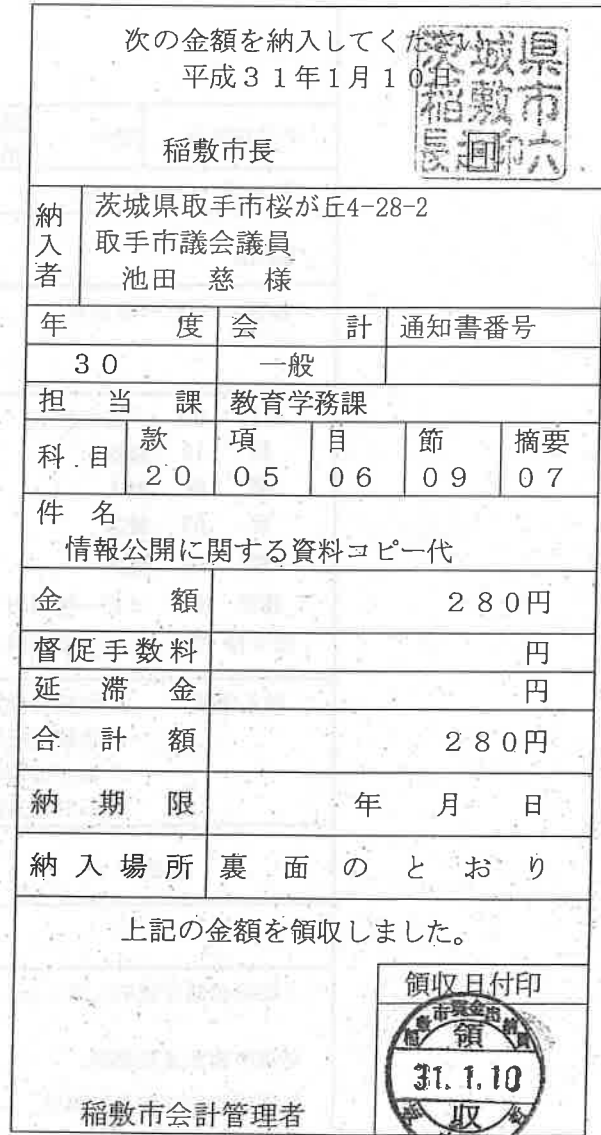 次の金額を納入してください
平成31年1月10日
稲敷市長
印
納入者
茨城県取手市桜が丘4-28-2
取手市議会議員
池田 慈 様
年度 会計 通知書番号
30 一般
担当課 教育学務課
科目 款 項 目 節 摘要
20 05 06 09 07
件名
情報公開に関する資料コピー代
金額 280円
督促手数料 円
延滞金 円
合計額 280円
納期限 年 月 日
納入場所 裏面のとおり
上記の金額を領収しました。
領収日付印
領
31.1.10
収
稲敷市会計管理者